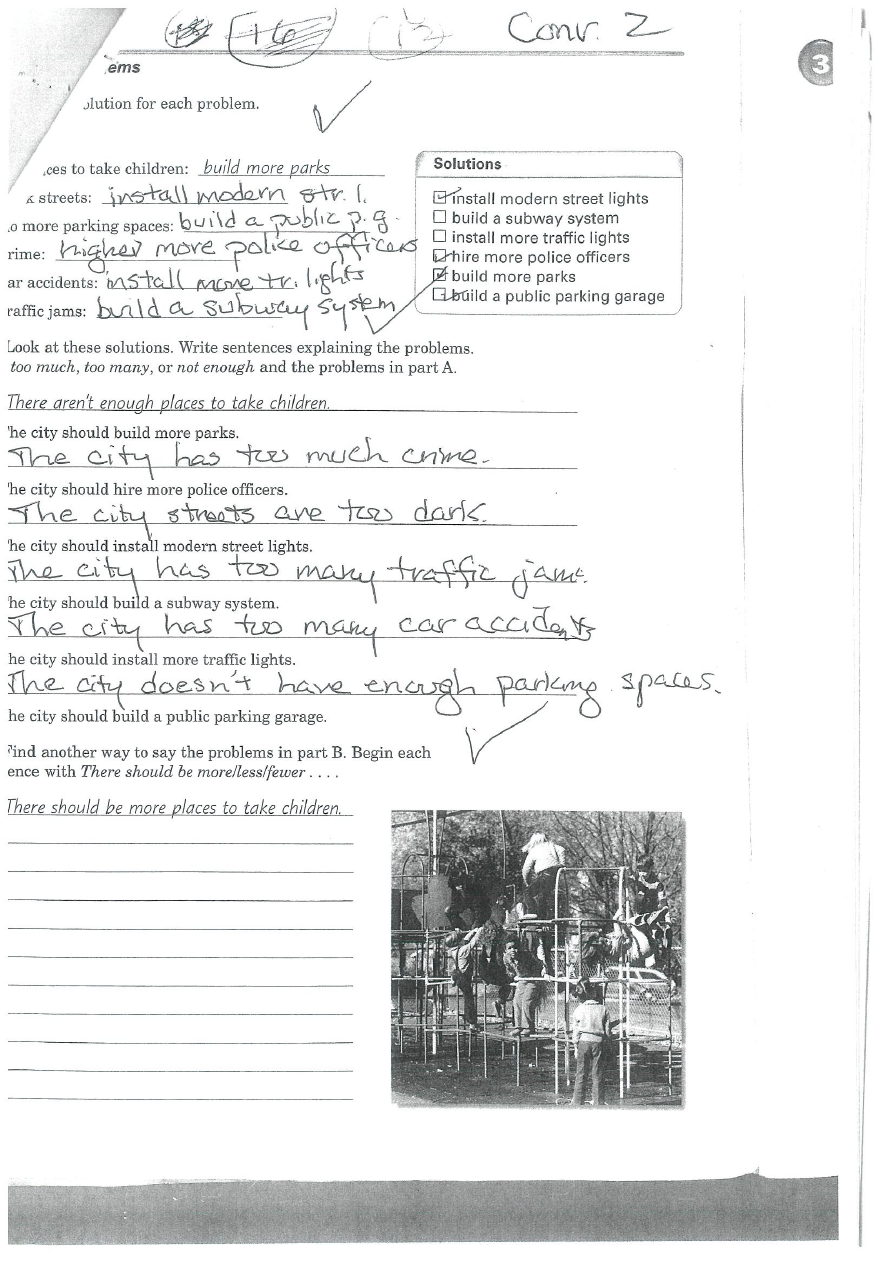 +6 Conv. 2
3
ems
lution for each problem.
ces to take children: build more parks
streets: install modern str. l.
o more parking spaces: build a public p. g.
rime: higher more police officers
ar accidents: install more tr. lights
raffic jams: build a subway system
Solutions
install modern street lights
build a subway system
install more traffic lights
hire more police officers
build more parks
build a public parking garage
Look at these solutions. Write sentences explaining the problems.
too much, too many, or not enough and the problems in part A.
There aren't enough places to take children.
he city should build more parks.
The city has too much crime.
he city should hire more police officers.
The city streets are too dark.
he city should install modern street lights.
The city has too many traffic jams.
he city should build a subway system.
The city has too many car accidents
he city should install more traffic lights.
The city doesn't have enough parking spaces.
he city should build a public parking garage.
Find another way to say the problems in part B. Begin each
ence with There should be more/less/fewer . . . .
There should be more places to take children.